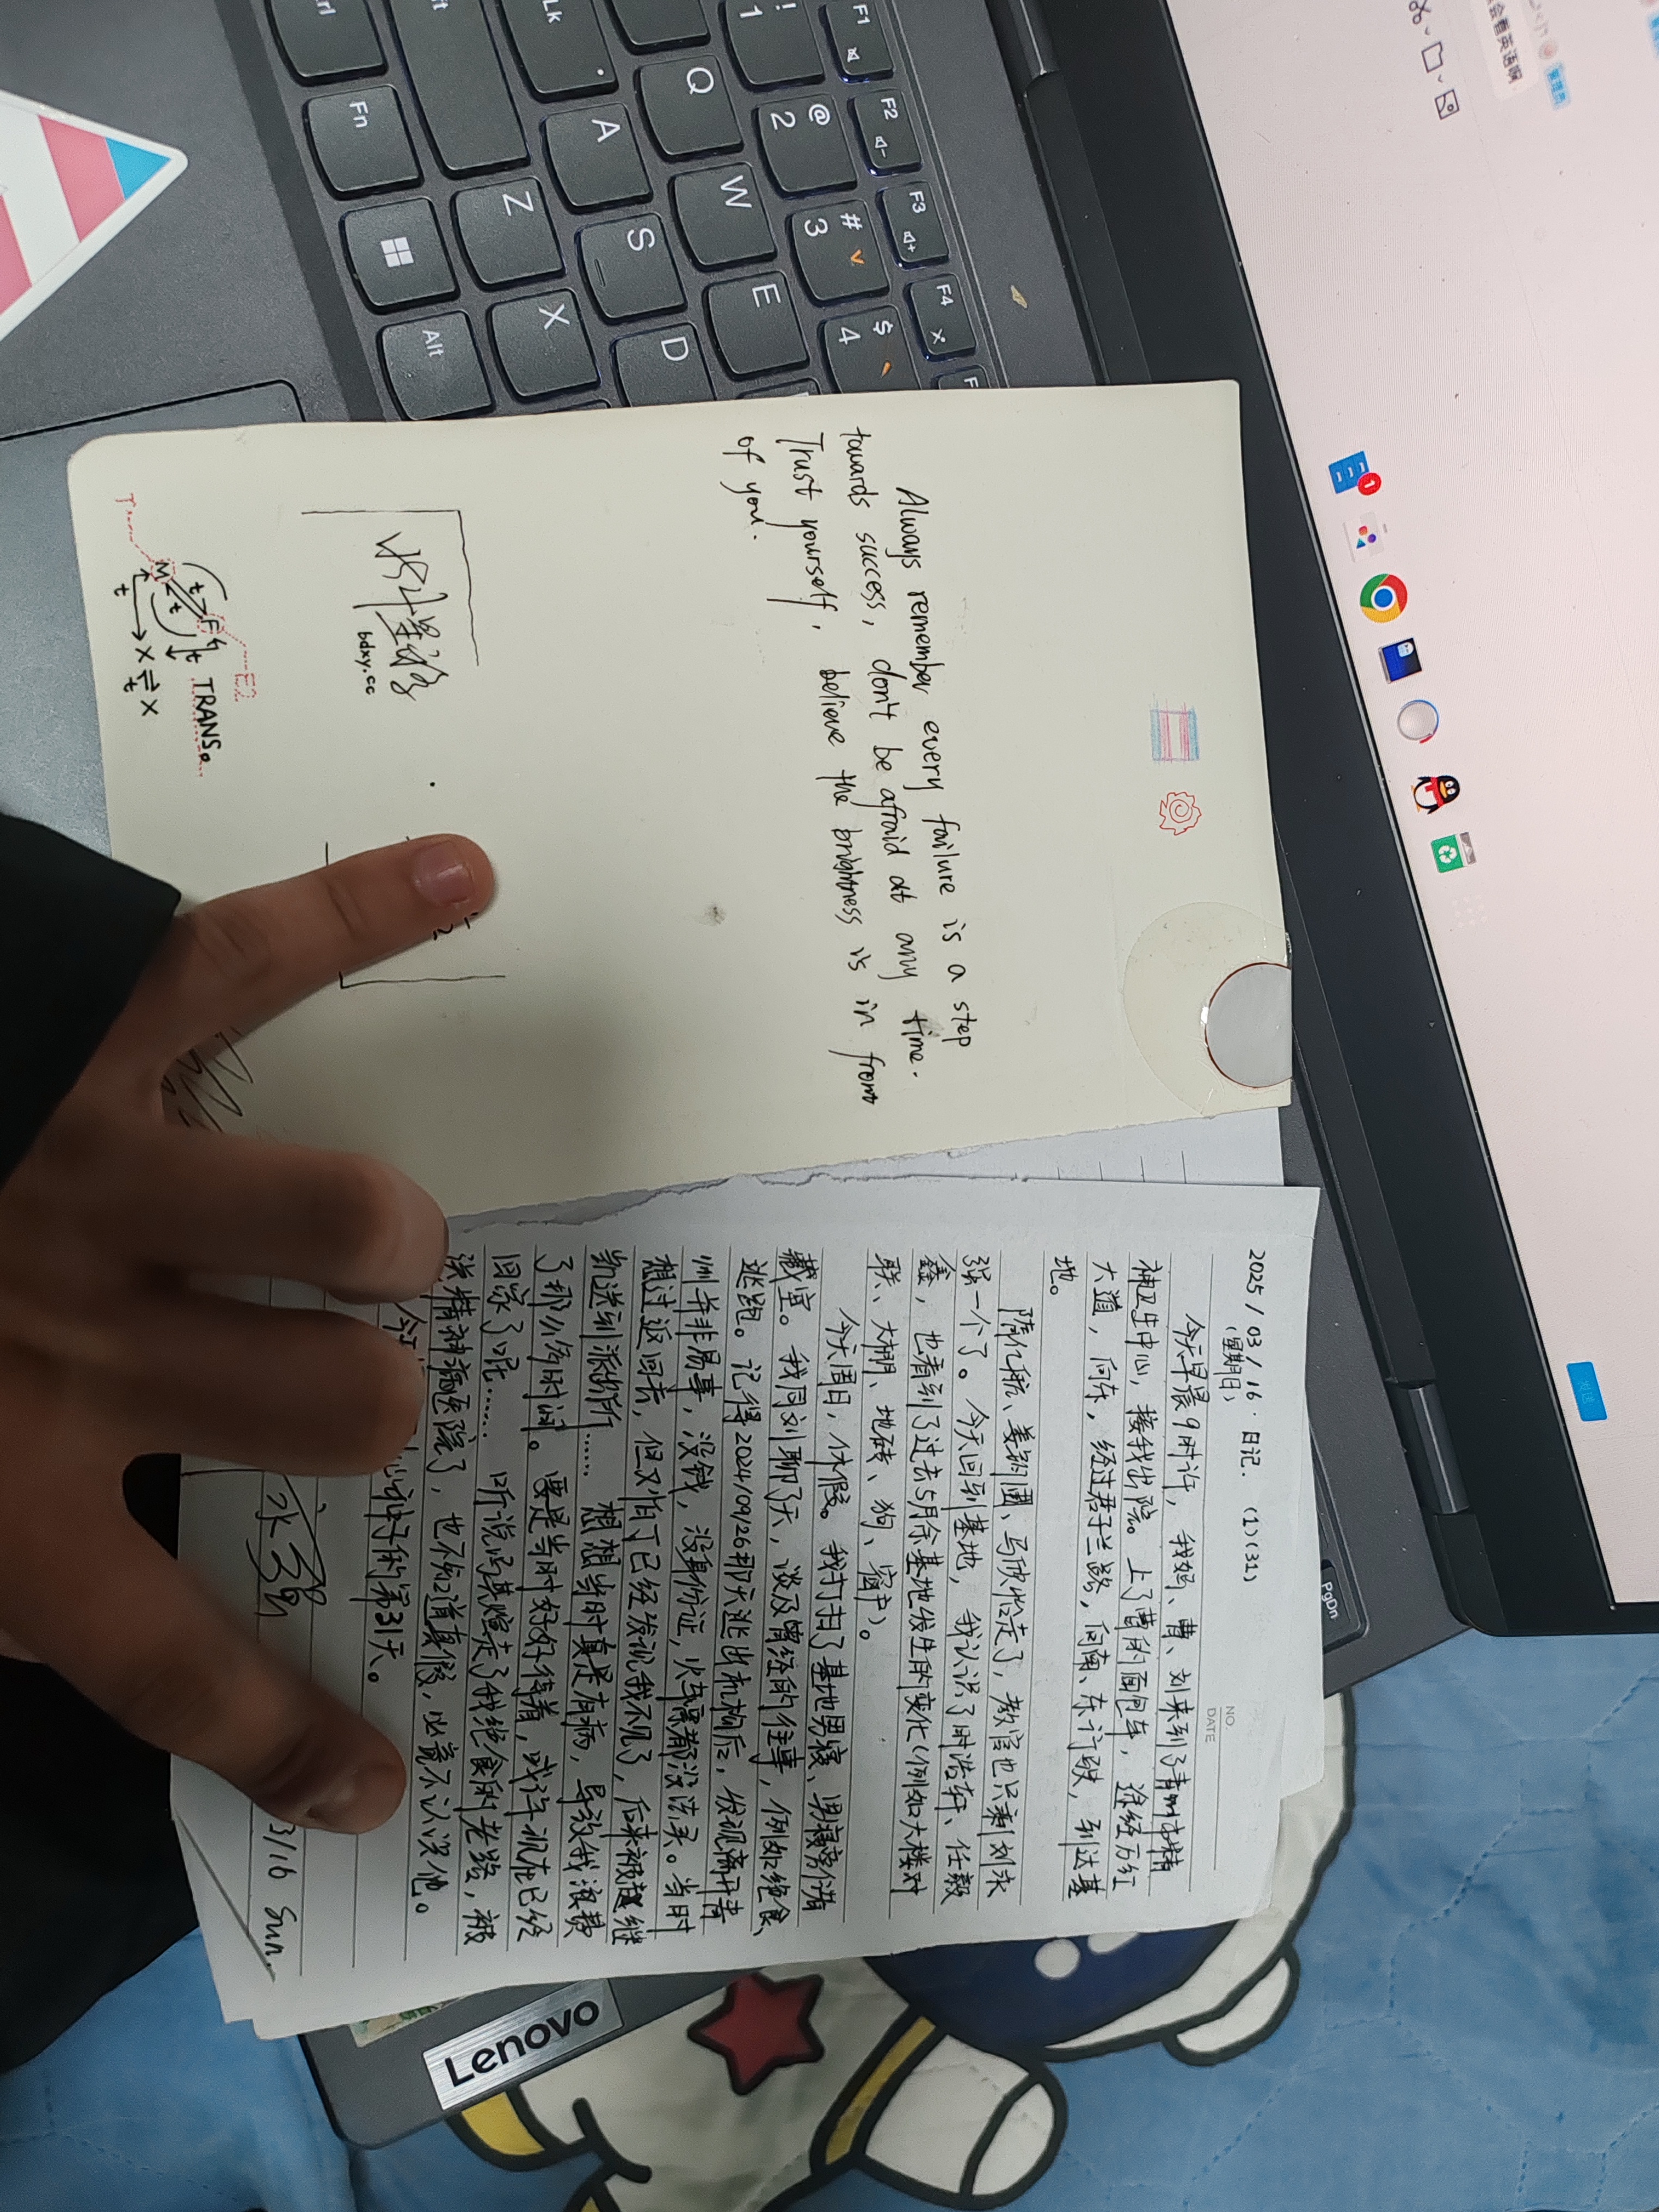 Always remember every failure is a step
towards success, don't be afraid at any time.
Trust yourself, believe the brightness is in front
of you.
bdxy.cc
T
M
F
E2
t
t
t
t
X ⇌ X
t
TRANS
NO.
DATE
2025/03/16·日记. (1)(31)
(星期日)
今天早晨9时许,我妈、曹、刘来到了青州市精
神卫生中心,接我出院。上了曹的面包车,途经历红
大道,向东,经过君子兰路,向南、东行驶,到达基
地。
隋亿航、姜钧圃、马欣怡走了,教官也只剩刘永
强一个了。今天回到基地,我认识了时浩轩、任毅
鑫,也看到了过去5月余基地发生的变化(例如大楼对
联、大棚、地砖、狗、窗户)。
今天周日,休假。我打扫了基地男寝、男寝旁储
藏室。我同刘聊了天,谈及曾经的往事,例如绝食、
逃跑。记得2024/09/26那天逃出机构后,发现离开青
州并非易事,没钱,没身份证,火车票都没法买。当时
想过返回去,但又怕丁已经发现我不见了,后来被赵继
凯送到派出所……想想当时真是有病,导致我浪费
了那么多时间。要是当时好好待着,或许现在已经
回家了呢…… 听说冯某煊走了我绝食的老路,被
送精神病医院了,也不知道真假,毕竟不认识他。
今天
的第31天。
3/16 Sun.
Lenovo
Fn
Alt
Lk
Q
W
E
A
S
D
Z
X
F1
F2
F3
F4
! 1
@ 2
# 3
$ 4
PgDn
会看英语啊
管理员
发送
1